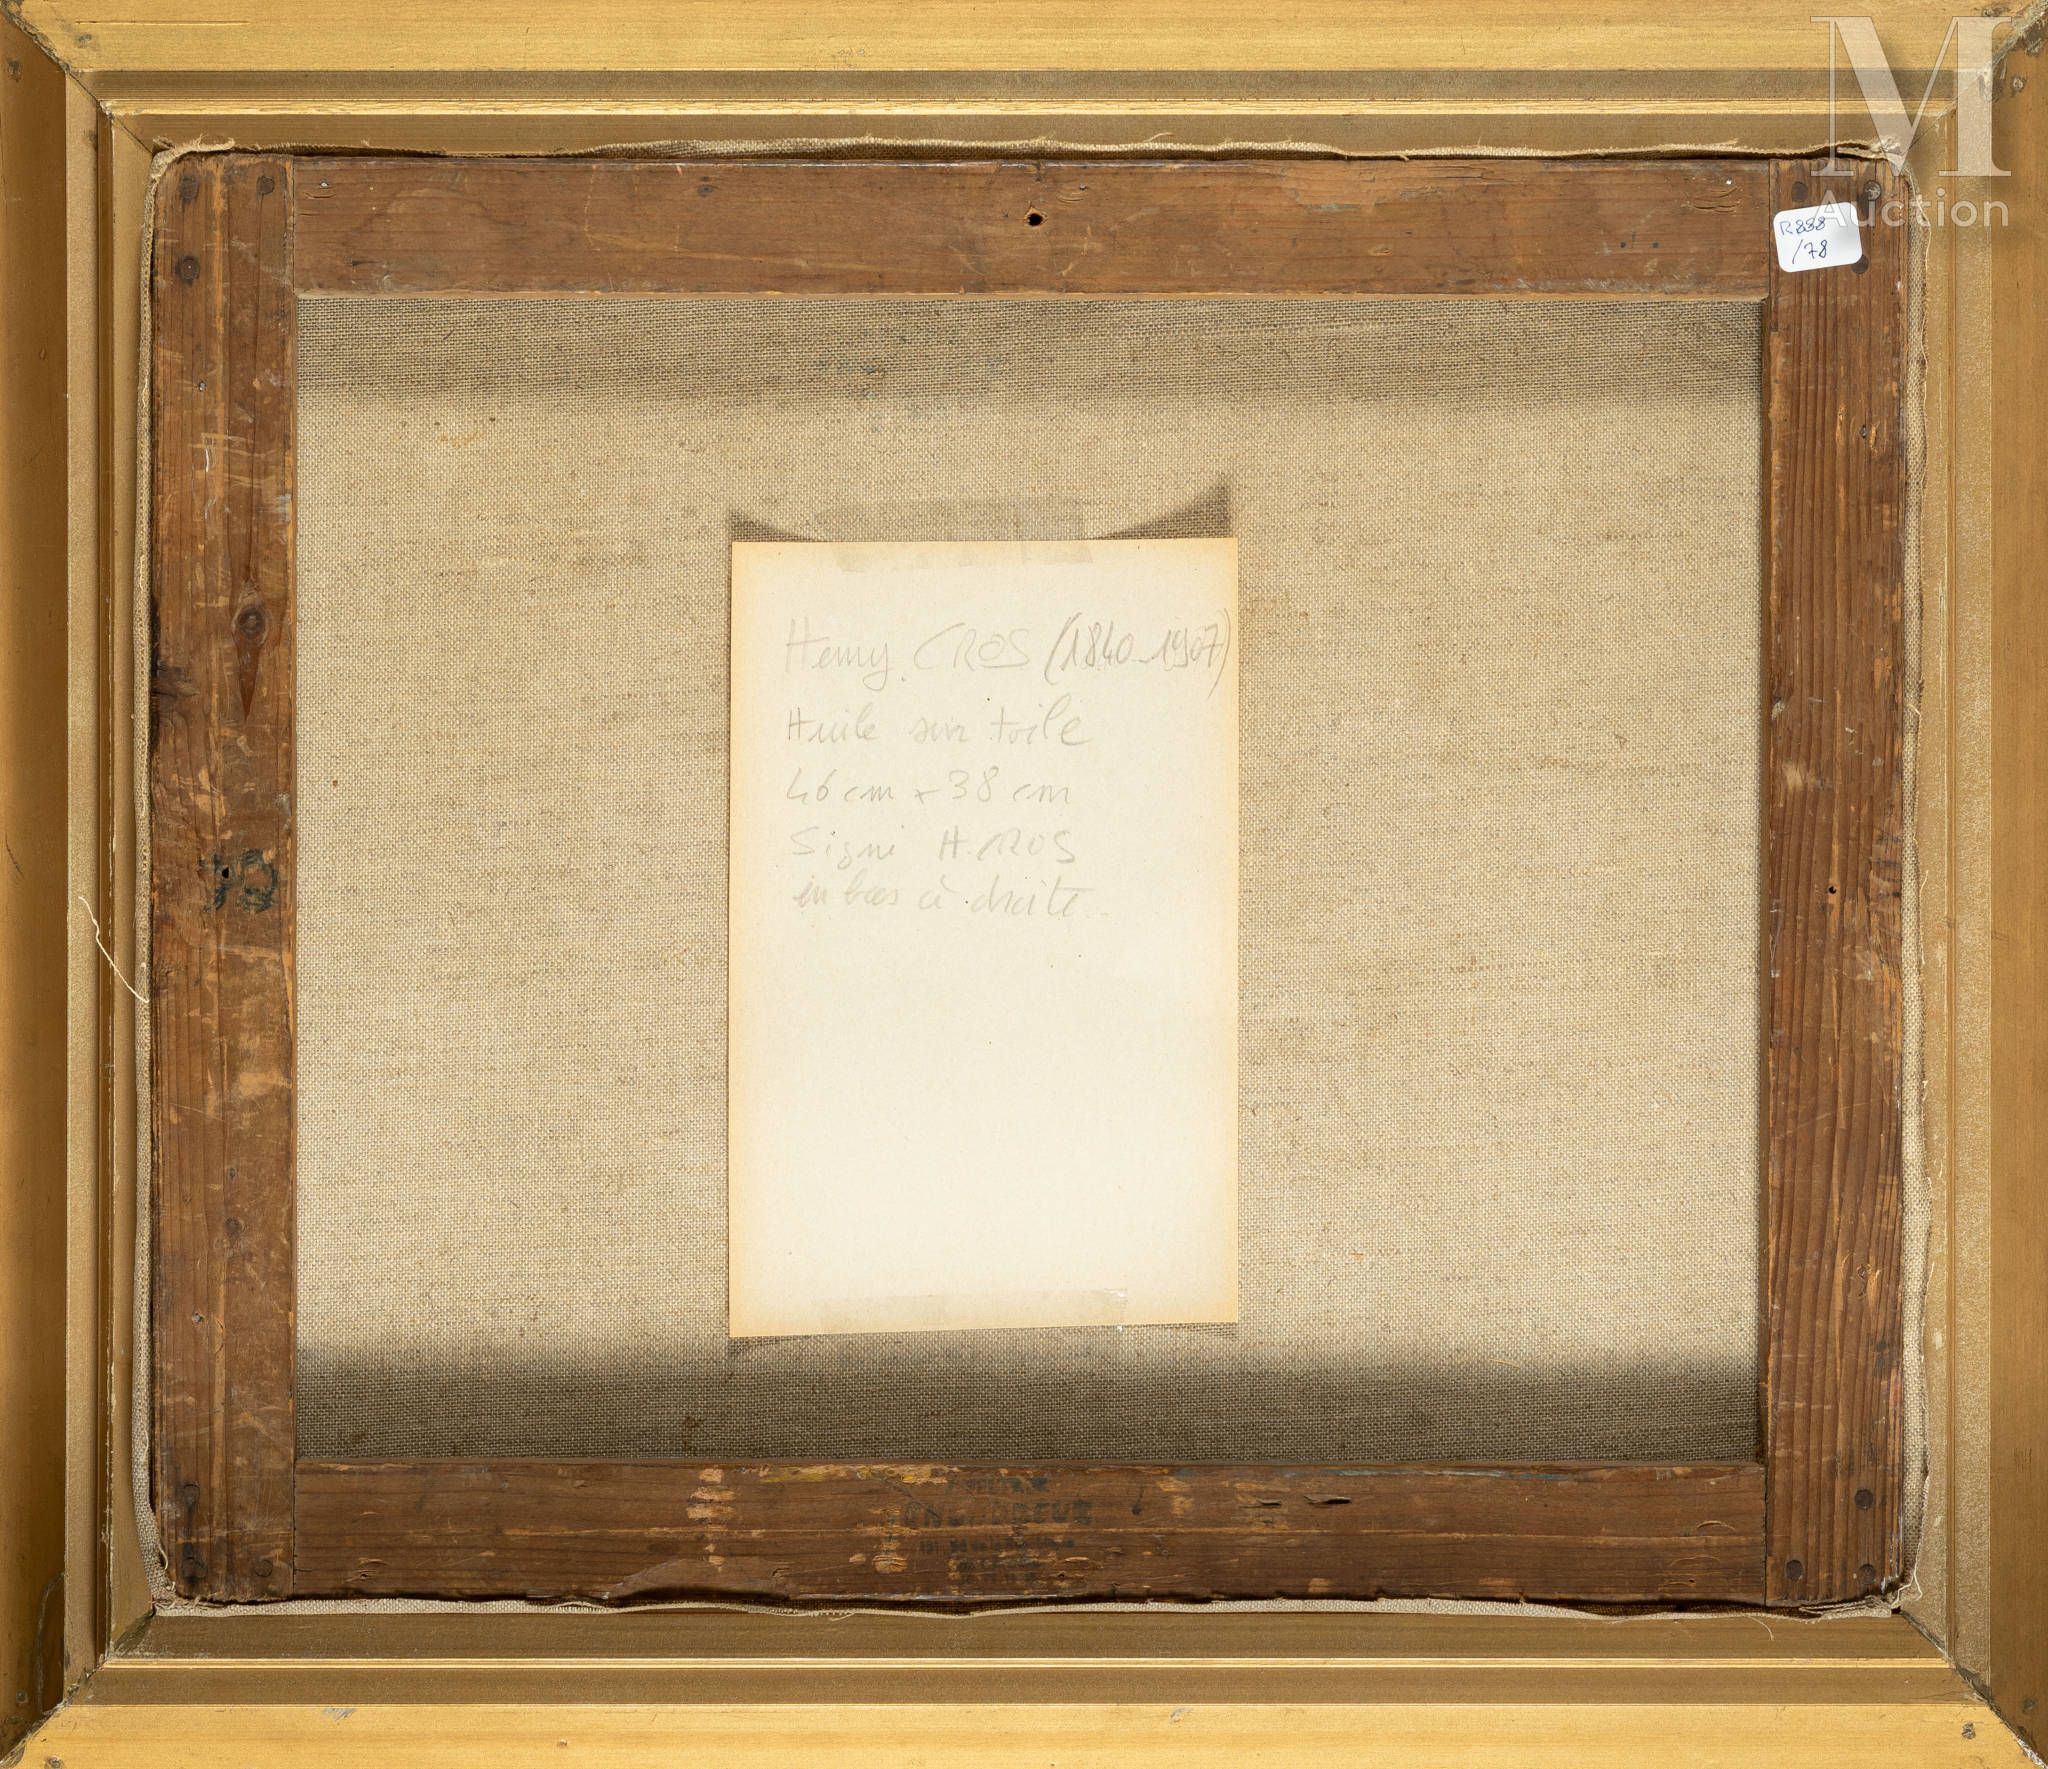 M
Auction
R838
/78
Henry CROS (1840-1907)
Huile sur toile
46 cm x 38 cm
Signé H. CROS
en bas à droite